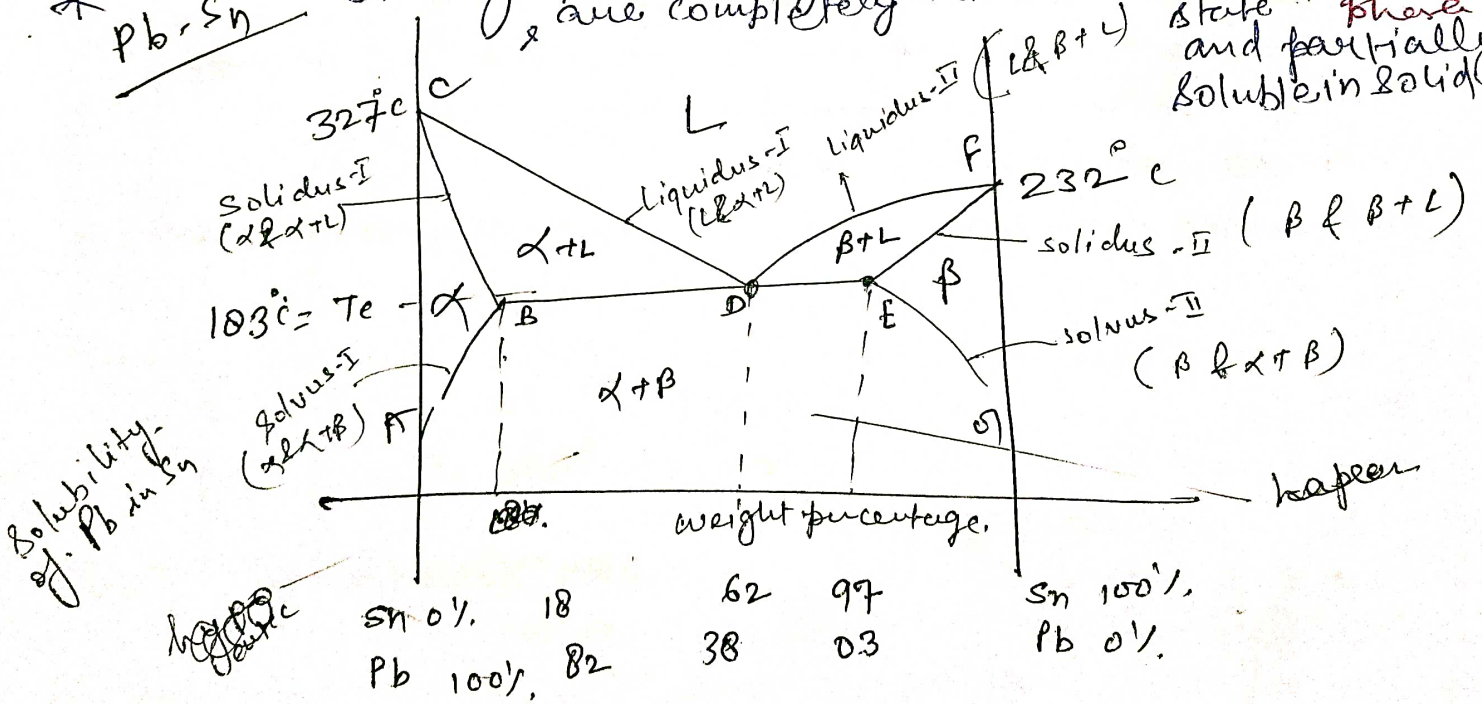 Pb-Sn
are completely
state phase
and partially
soluble in solid
327°C
C
L
Liquidus-II (L & β+L)
Solidus-I
(α & α+L)
Liquidus-I
(L & α+L)
F
232°C
α+L
β+L
solidus-II (β & β+L)
183°C = Te
α
B
D
E
β
solvus-II
(β & α+β)
solvus-I
(α & α+β)
A
α+β
G
Solubility
of Pb in Sn
weight percentage.
Sn 0%. 18 62 97 Sn 100%.
Pb 100%. 82 38 03 Pb 0%.